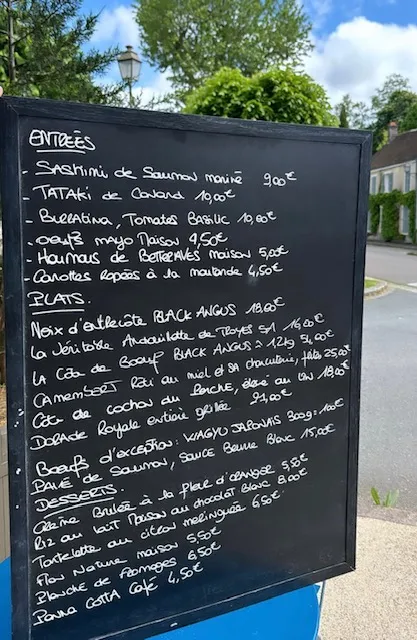 ENTRÉES
- SASHIMI de Saumon mariné 9,00€
- TATAKI de Canard 10,00€
- BURRATINA, Tomates BASILIC 10,00€
- oeufs mayo Maison 4,50€
- Houmous de BETTERAVES maison 5,00€
- Carottes Rapées à la moutarde 4,50€
PLATS.
Noix d'entrecôte BLACK ANGUS 18,60€
La Véritable Andouillette de TROYES 5A 16,00€
LA Côte de Boeuf BLACK ANGUS 1,2kg 54,00€
CAMEMBERT Rôti au miel et SA charcuterie, frites 25,00€
Côte de cochon du PERCHE, au 18,00€
DORADE Royale entière grillée 21,00€
Boeufs d'exception: WAGYU JAPONAIS 300g = 100€
PAVÉ de SAUMON, SAUCE Beurre Blanc 15,00€
DESSERTS.
Crème Brulée à la fleur d'ORANGER 5,50€
Riz au lait Maison au chocolat Blanc 6,00€
Tartelette au citron meringuée 6,50€
Flan Nature maison 5,50€
Planche de fromages 6,50€
PANNA COTTA Café 4,50€